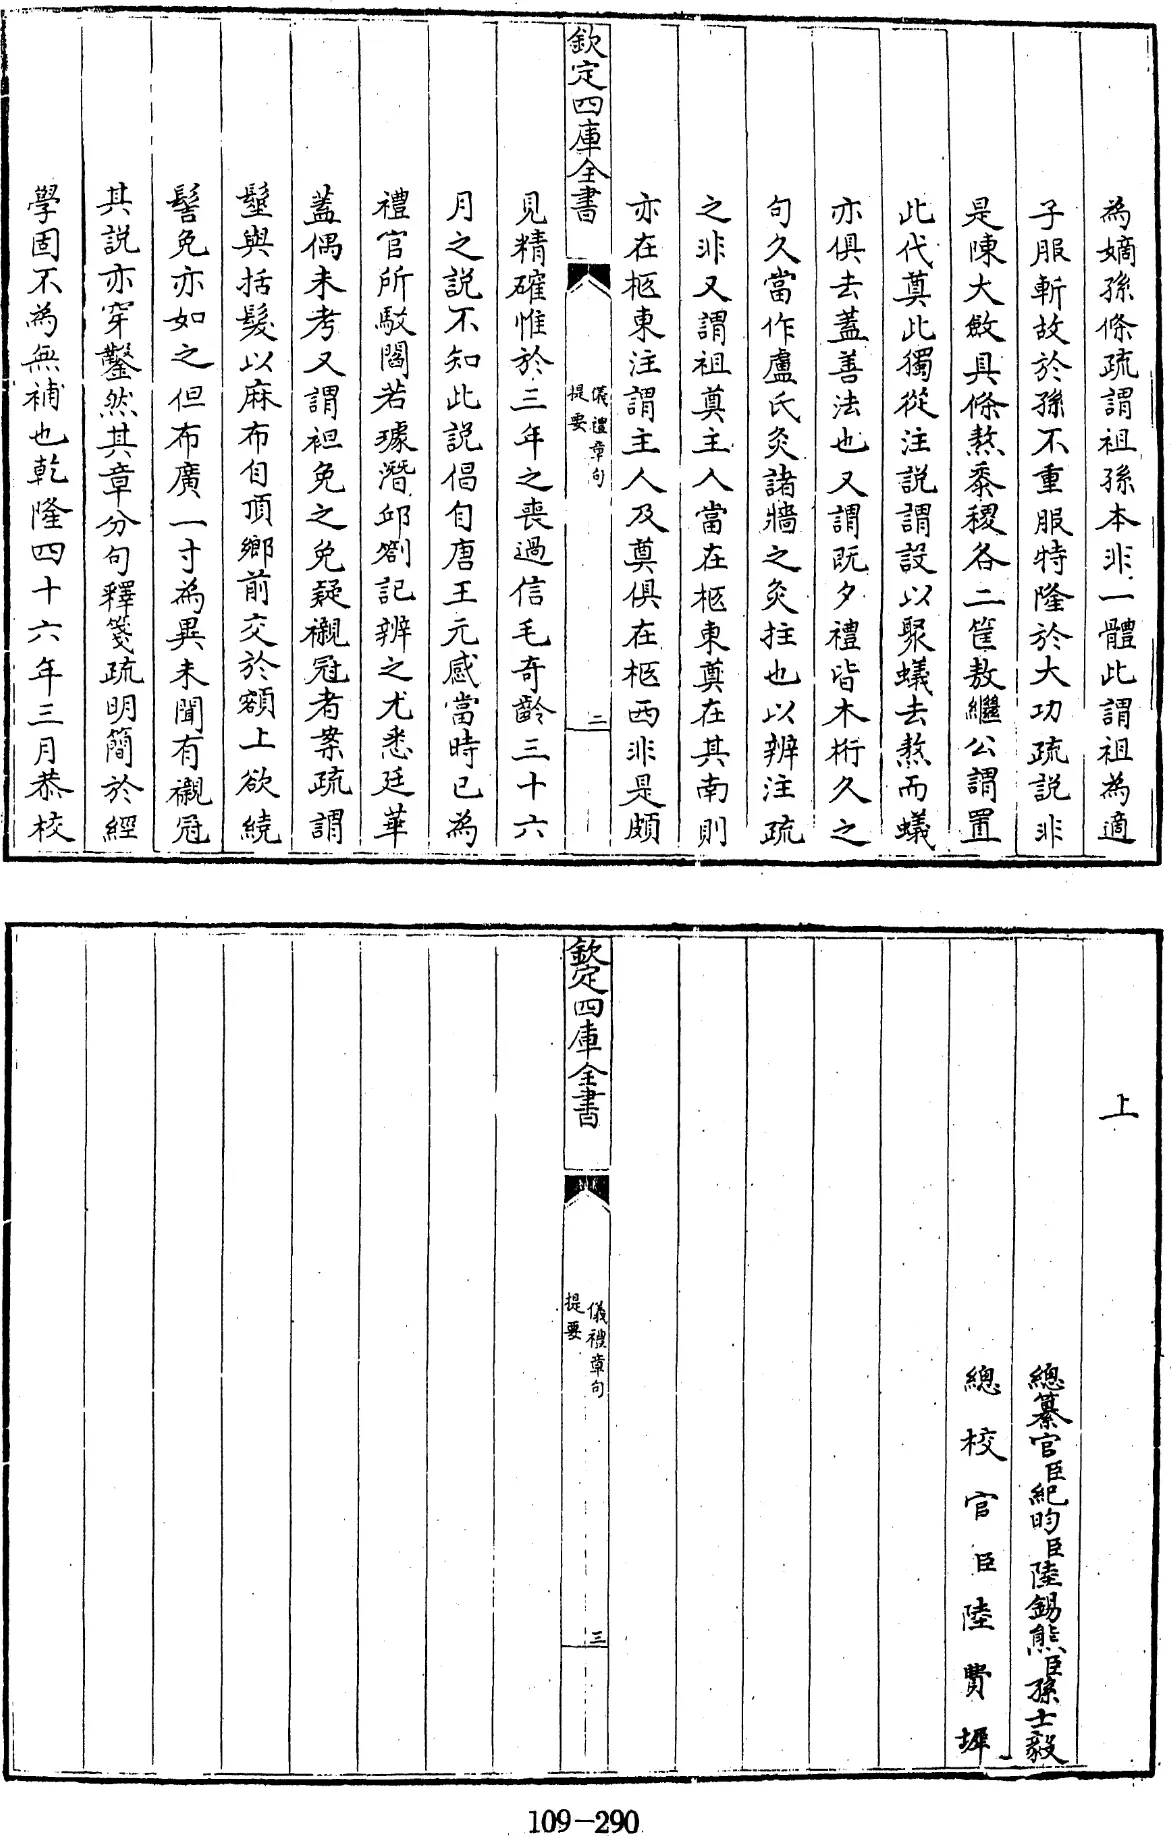 為嫡孫條疏謂祖孫本非一體此謂祖為適
子服斬故於孫不重服特隆於大功疏說非
是陳大斂具條熬黍稷各二筐敖繼公謂置
此代奠此獨從注說謂設以聚蟻去熬而蟻
亦俱去蓋善法也又謂既夕禮皆木桁久之
句久當作盧氏灸諸牆之灸拄也以辨注疏
之非又謂祖奠主人當在柩東奠在其南則
亦在柩東注謂主人及奠俱在柩西非是頗
欽定四庫全書
儀禮章句
提要
二
見精確惟於三年之喪過信毛奇齡三十六
月之說不知此說倡自唐王元感當時已為
禮官所駮閻若璩潛邱劄記辨之尤悉廷華
蓋偶未考又謂袒免之免疑襯冠者案疏謂
髽與括髮以麻布自頂鄉前交於額上欲繞
髻免亦如之但布廣一寸為異未聞有襯冠
其說亦穿鑿然其章分句釋箋疏明簡於經
學固不為無補也乾隆四十六年三月恭校
上
總纂官臣紀昀臣陸錫熊臣孫士毅
總校官臣陸費墀
欽定四庫全書
儀禮章句
提要
三
109-290